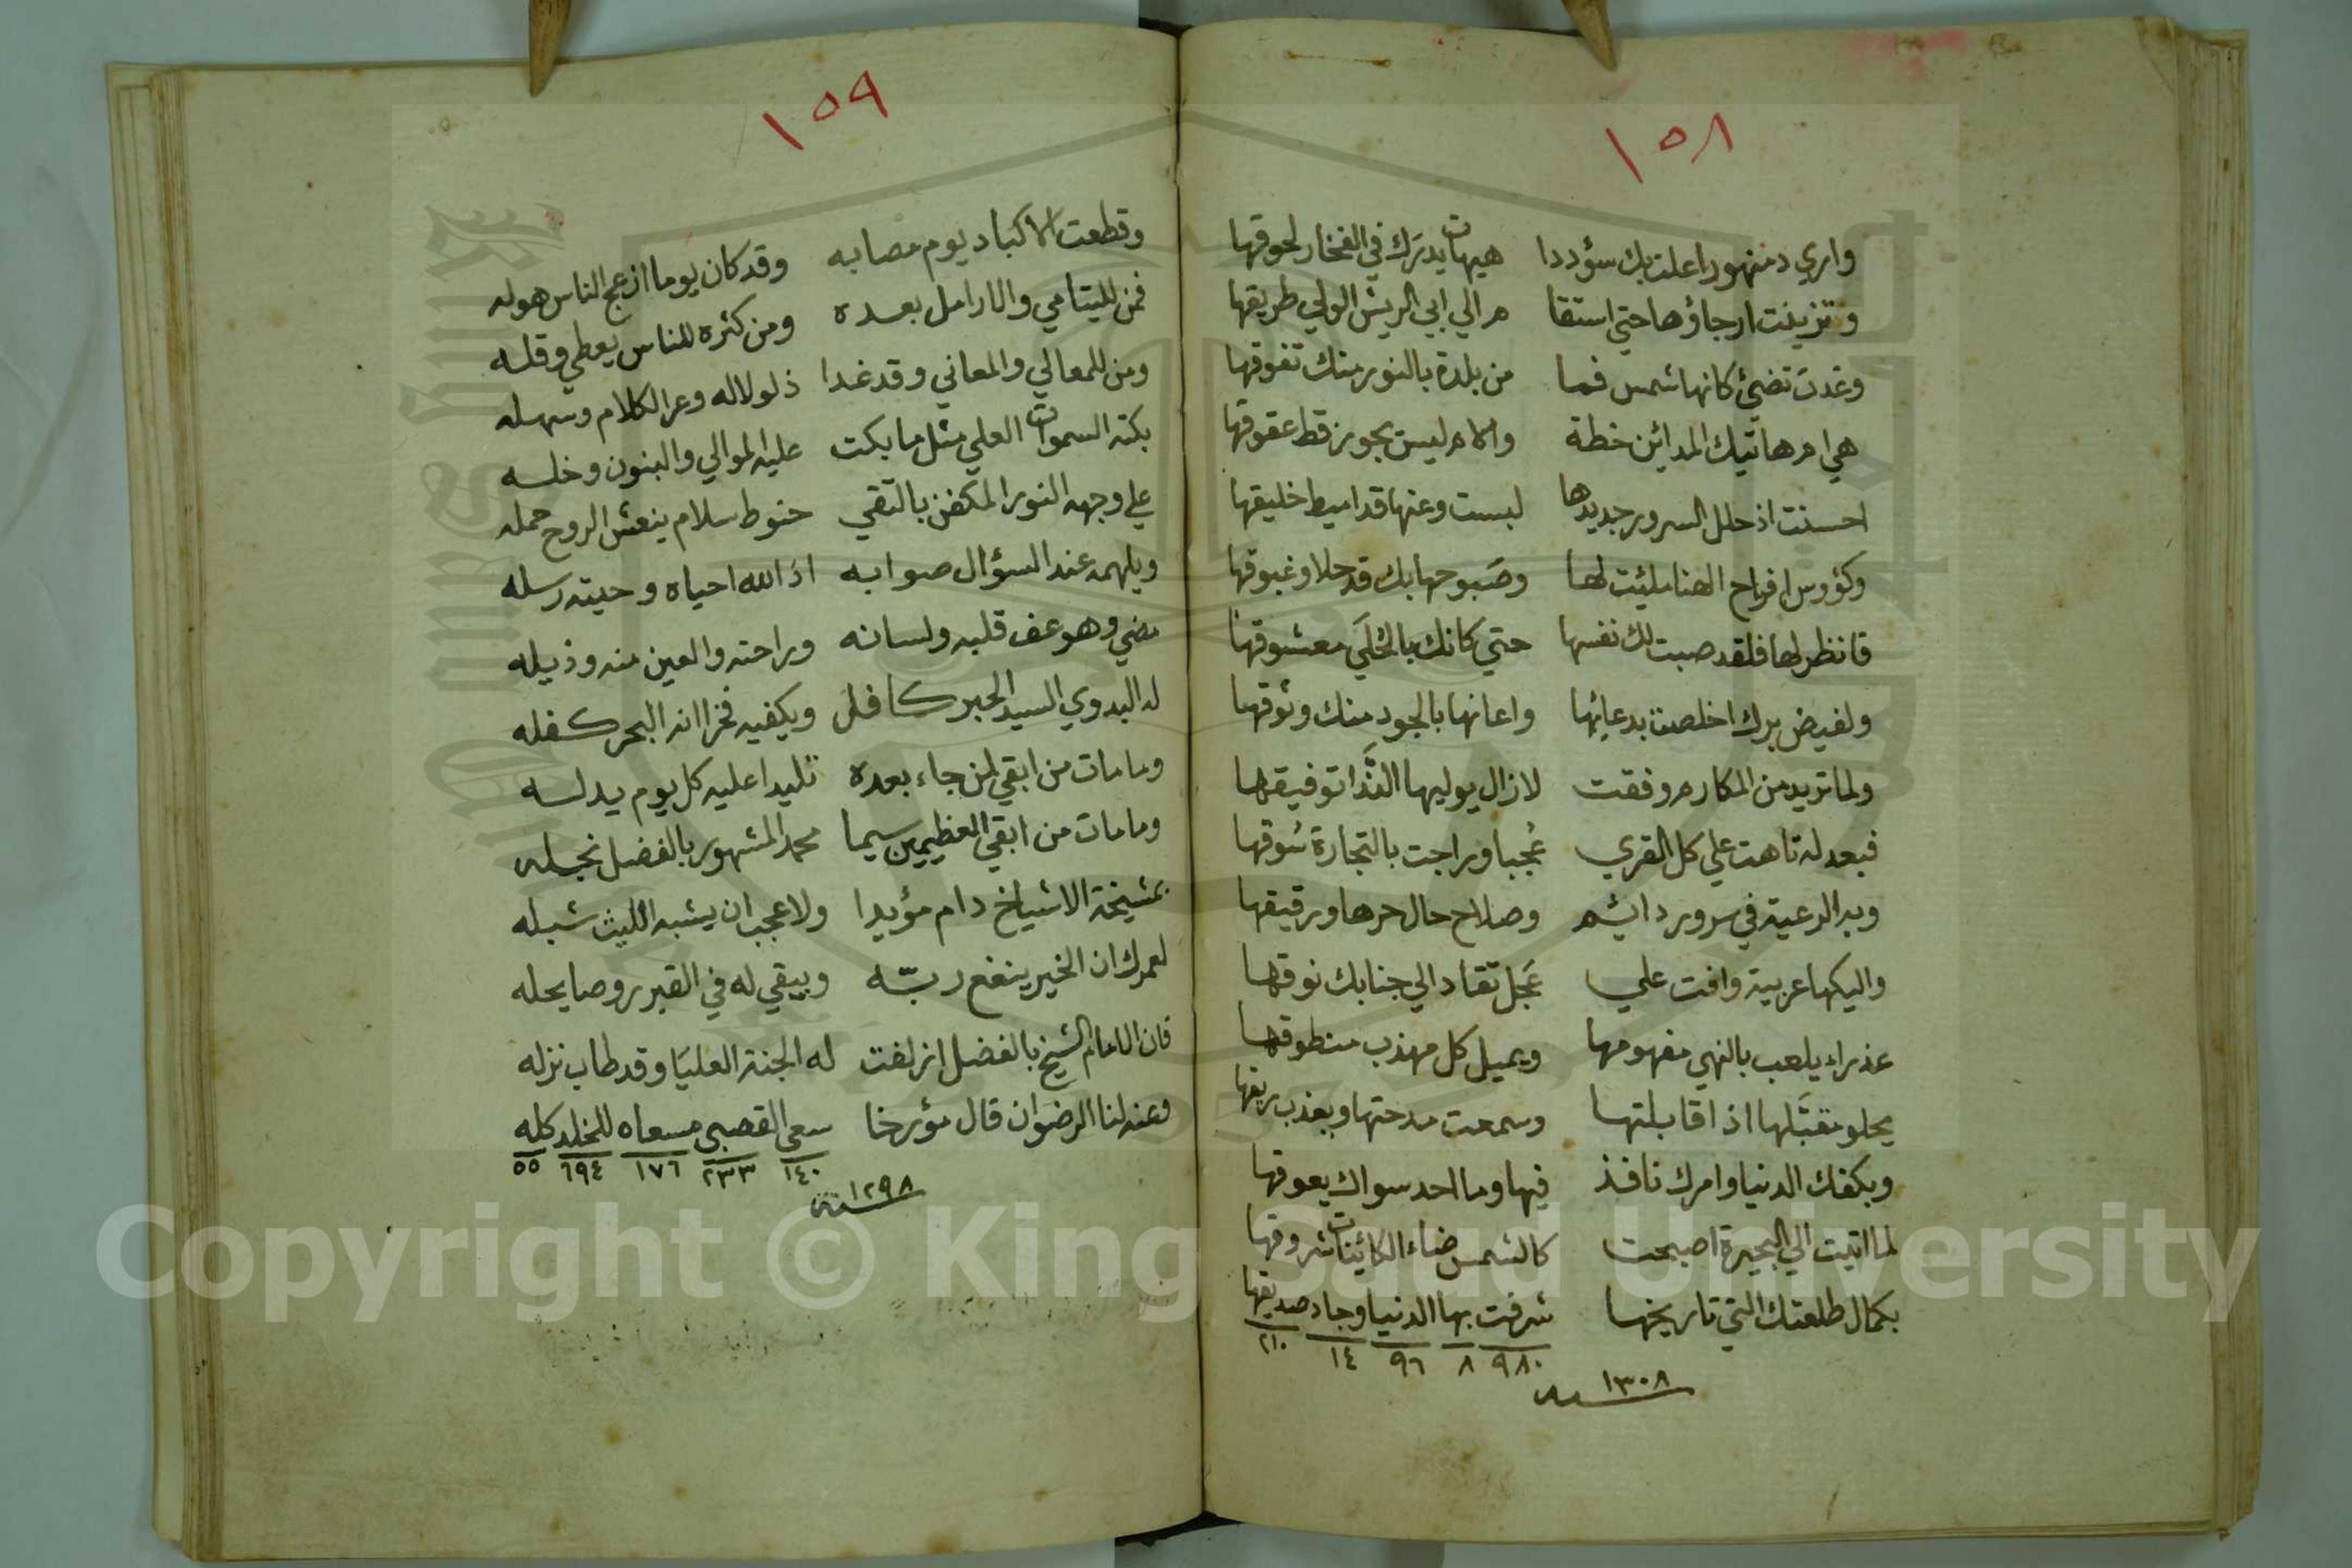 ١٥٨
واري دمنهورا علت بك سؤددا هيهات يدرك في الفخار لحوقها
وتزينت ارجاؤها حتي استقا م الي ابي الريش الولي طريقها
وغدت تضئ كانها شمس فما من بلدة بالنور منك تفوقها
هي ام هاتيك المدائن خطة والام ليس يجوز قط عقوقها
احسنت اذ حلل السرور جديدها لبست وعنها قد اميط خليقها
وكؤوس افراح الهنا مليئت لها وصبوحها بك قد حلا وغبوقها
فانظر لها فلقد صبت لك نفسها حتي كانك بالخلي معشوقها
ولفيض برك اخلصت بدعائها واعانها بالجود منك وثوقها
ولما تريد من المكارم وفقت لازال يوليها الندا توفيقها
فبعدله تاهت علي كل القري عُجبا وراجت بالتجارة سُوقها
وبه الرعية في سرور دائم وصلاح حال حرها ورقيقها
واليكها عربية وافت علي عَجل تقاد الي جنابك نوقها
عذراء يلعب بالنهي مفهومها ويميل كل مهذب منطوقها
يحلو مقبَّلها اذا قابلتها وسمعت مدحتها ويعذب ريقها
وبكفك الدنيا وامرك نافذ فيها وما احد سواك يعوقها
لما اتيت الي البحيرة اصبحت كالشمس ضاء الكائنات شروقها
بكمال طلعتك التي تاريخها شرفت بها الدنيا وجاد صديقها
٩٨٠ ٨ ٩٦ ١٤ ٢١٠
سنة ١٣٠٨
١٥٩
وقطعت الاكباد يوم مصابه وقد كان يوما ازعج الناس هوله
فمن لليتامي والارامل بعده ومن كثره للناس يعطي وقله
ومن للمعالي والمعاني وقد غدا ذلولا له وعر الكلام وسهله
بكته السموات العلي مثل ما بكت عليه الموالي والبنون وخله
علي وجهه النور المكفن بالتقي حنوط سلام ينعش الروح حمله
ويلهمه عند السؤال صوابه اذ الله احياه وحيته رسله
مضي وهو عف قلبه ولسانه وراحته والعين منه وذيله
له البدوي السيد الحبر كافل ويكفيه فخرا انه البحر كفله
وما مات من ابقي لمن جاء بعده تليدا عليه كل يوم يدله
وما مات من ابقي العظيمين سيما محمد المشهور بالفضل نجله
بمشيخة الاشياخ دام مؤيدا ولا عجب ان يشبه الليث شبله
لعمرك ان الخير ينفع ربّه ويبقي له في القبر روضا يحله
فان الامام الشيخ بالفضل ازلفت له الجنة العليا وقد طاب نزله
وعنه لنا الرضوان قال مؤرخا سعي القصبي مسعاه للخلد كله
١٤٠ ٢٣٣ ١٧٦ ٦٩٤ ٥٥
سنة ١٢٩٨
Copyright © King Saud University